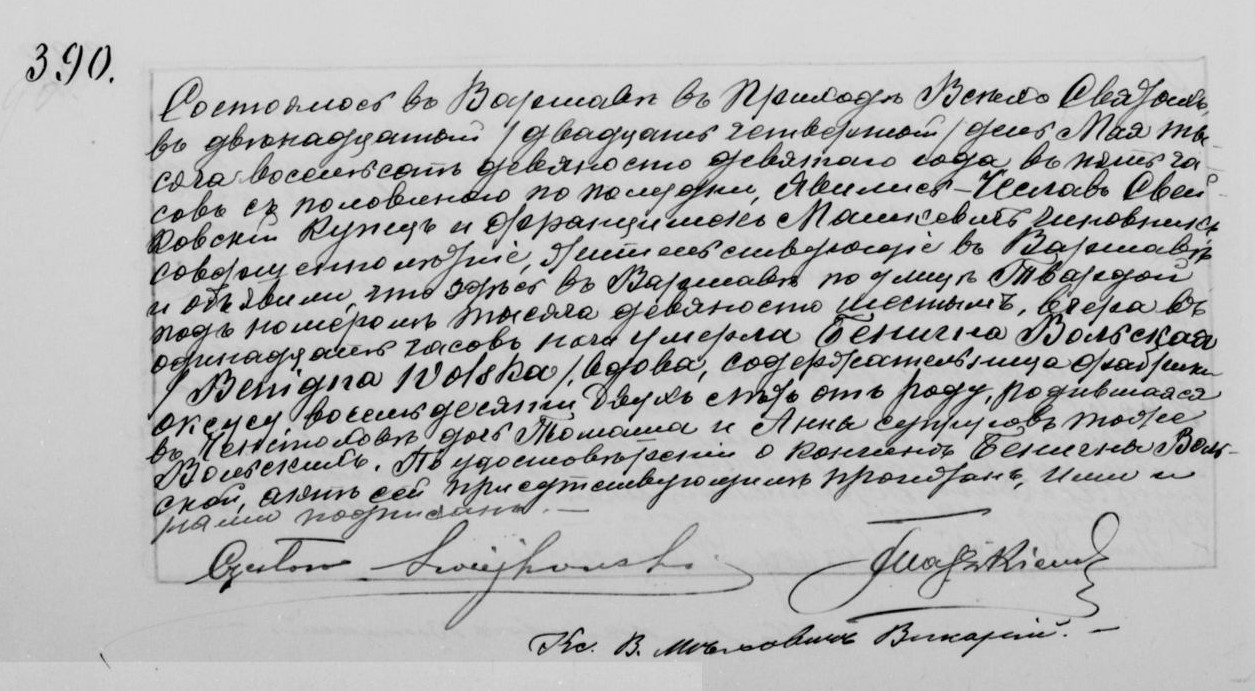 390.
Состоялось въ Варшавѣ въ Приходѣ Всѣхъ Святыхъ,
въ двѣнадцатый /двадцать четвертый/ день Мая ты-
сяча восемьсотъ девяносто девятого года въ пять ча-
совъ съ половиною по полудни, Явились – Чеславъ Свей-
ковскій Купецъ и Францишекъ чиновникъ,
совершеннолѣтніе, жительствующіе въ Варшавѣ
и объявили, что здѣсь въ Варшавѣ по улицѣ Твардой
подъ номеромъ тысяча девяносто шестымъ, вчера въ
одинадцать часовъ ночи умерла Бенигна Вольская
/Benigna Wolska/, вдова, содержательница фабрики
уксусу восемьдесяти двухъ лѣтъ отъ роду, родившаяся
въ Ченстоховѣ дочь Томаша и Анны супруговъ тоже
Вольскихъ. По удостовѣреніи о кончинѣ Бенигны Воль-
ской, актъ сей присутствующимъ прочитанъ, ими и
нами подписанъ. –
Кс. В. Викарій. –